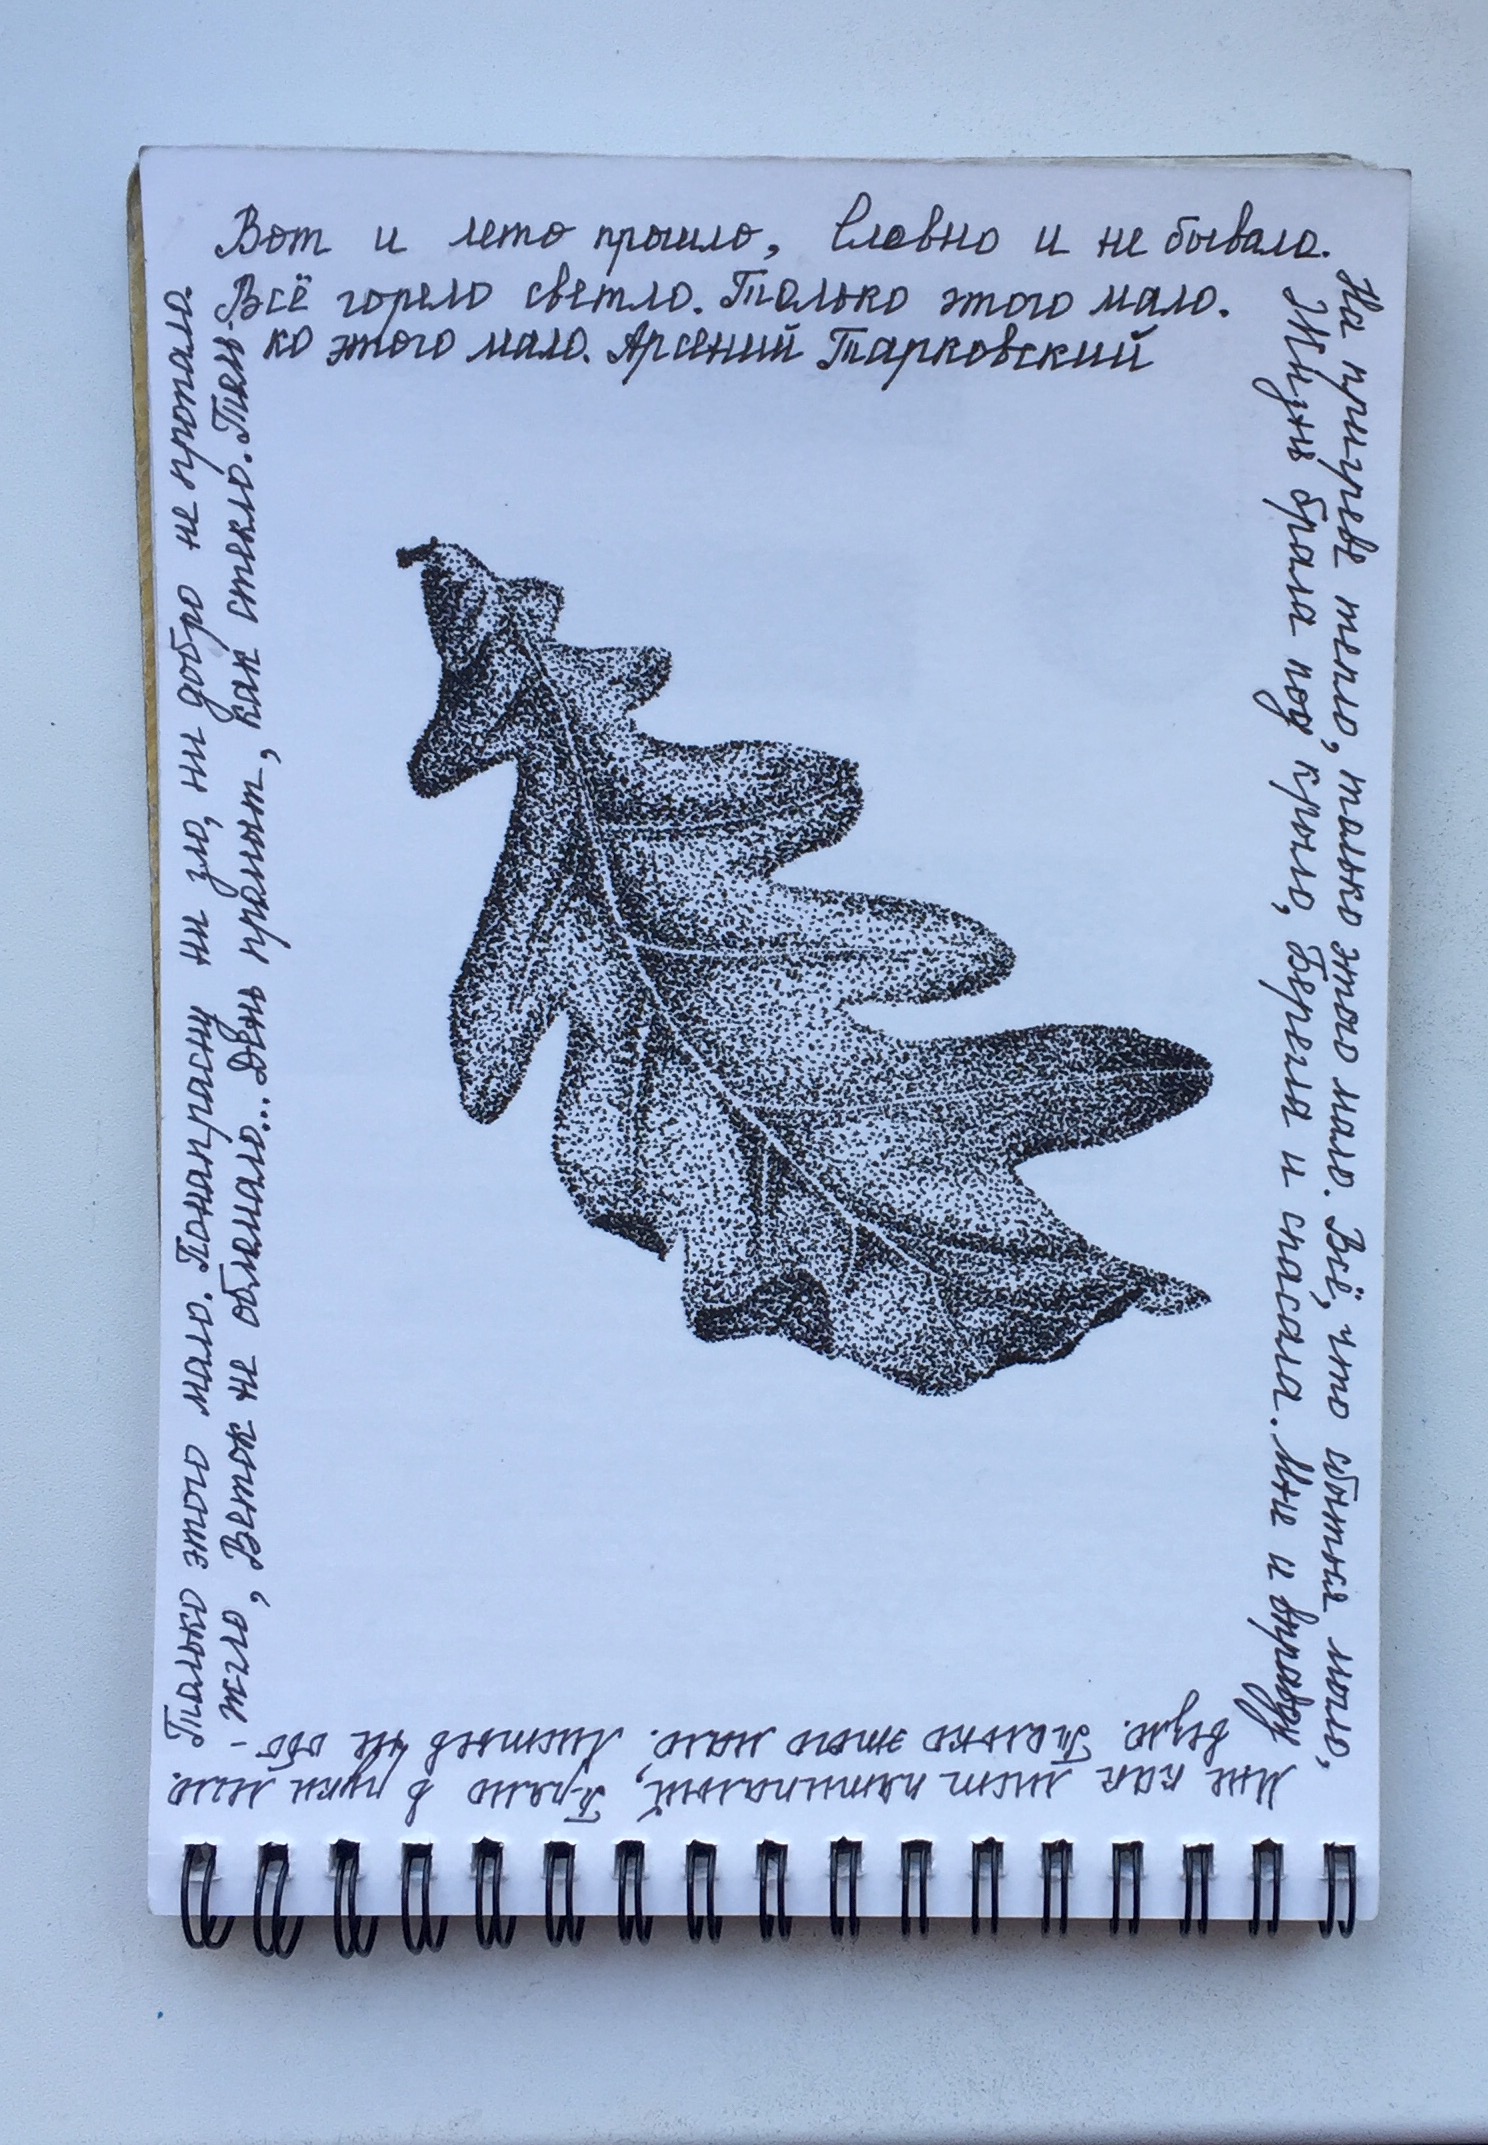 Вот и лето прошло, Словно и не бывало.
На пригреве тепло, только этого мало. Всё, что сбыться могло,
Мне как лист пятипалый, Прямо в руки легло.
Только этого мало. Понапрасну ни зло, ни добро не пропало
Всё горело светло. Только этого мало.
Жизнь брала под крыло, Берегла и спасала. Мне и вправду
везло. Только этого мало. Листьев не обо
-жгло, Веток не обломало... День промыт, как стекло. Толь-
ко этого мало. Арсений Тарковский